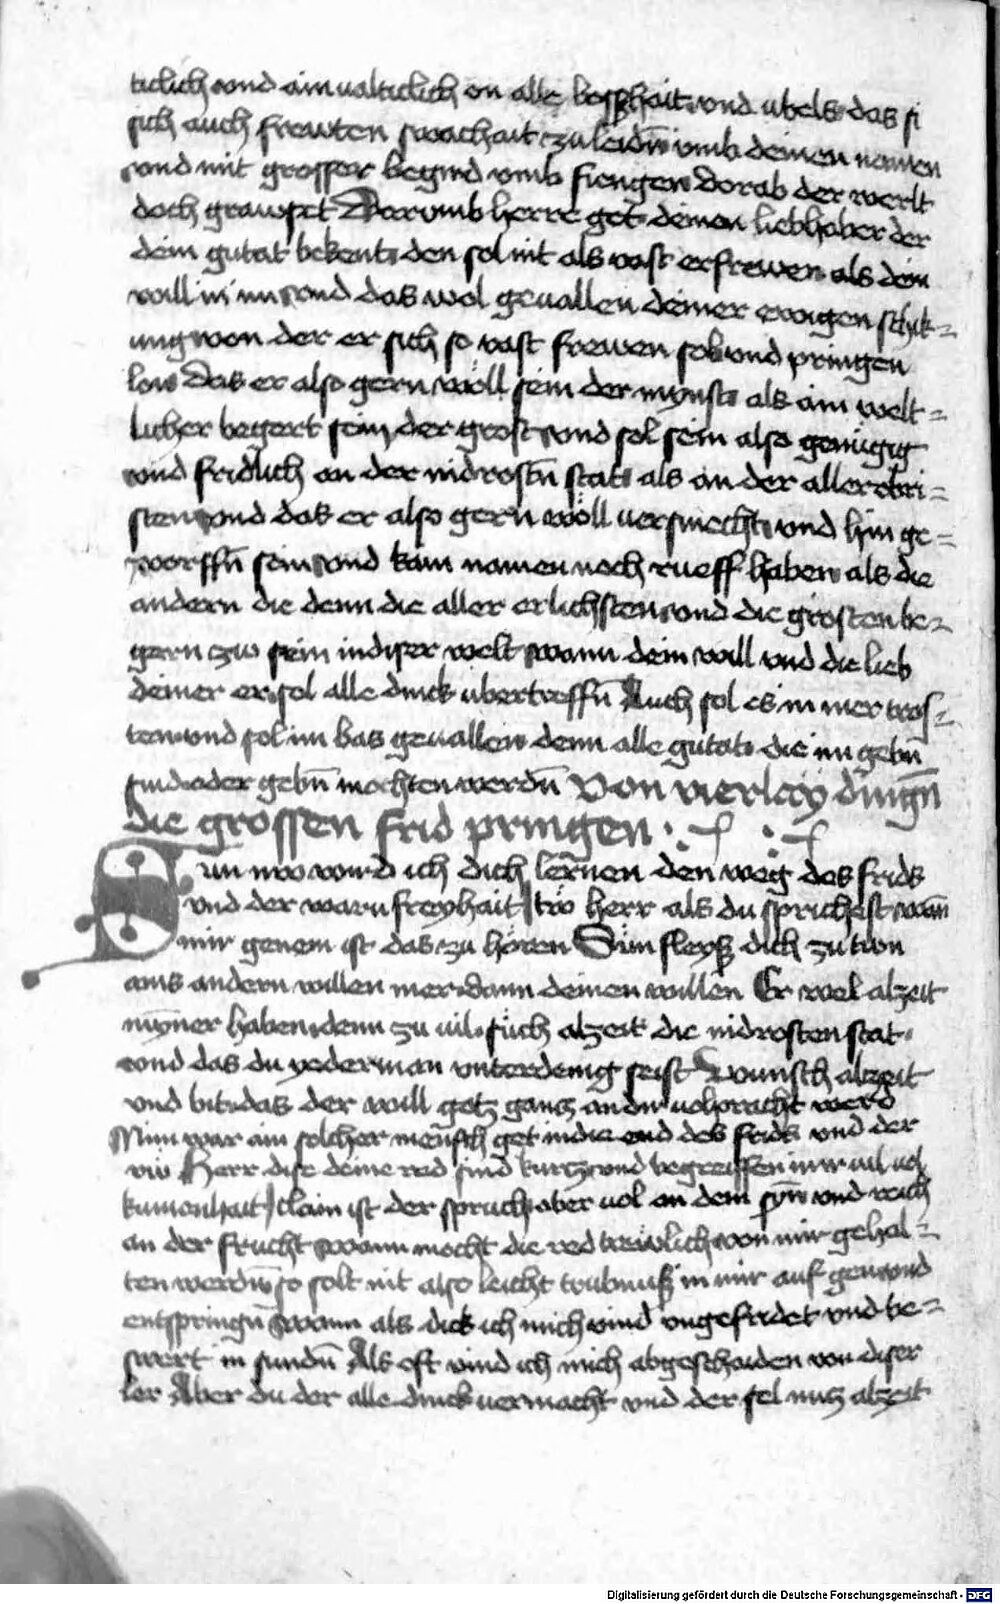 ticlich vnd ainualticlich on alle bosshait vnd ubels das si
sich auch frewten smachait zu leidn̄ vmb deinen namen
vnd mit grosser begird vmb fiengen dorab der werlt
doch grawset Darumb herre got deinen liebhaber der
dein gutat bekent den sol nit als vast erfrewen als dein
will in im vnd das wol geuallen deiner ewigen schik=
ung von der er sich so vast frewen sol vnd pringen
lon Das er also gern wöll sein der mynst als ain welt=
licher begert sein der grost vnd sol sein also genügig
vnd fridlich an der nidrostn̄ stat als an der allerobri=
sten vnd das er also gern wöll versmecht vnd hin ge=
worffn̄ sein vnd kain namen noch rueff haben als die
andern die denn die aller erlichsten vnd die grosten be=
gern zw sein in diser welt wann dein will vnd die lieb
deiner er sol alle dinck ubertreffn̄ Auch sol es in mer tros=
ten vnd sol im bas geuallen denn alle gutat die im gebn̄
sind oder gebn̄ mochten werdn̄ Von vierlay dingn̄
die grossen frid pringen
Sun nw wird ich dich lernen den weg des frids
vnd der warn freyhait tw herr als du sprichest wan̄
mir genem ist das zu hören Sun fleyß dich zu tun
ains andern willen mer dann deinen willen Er wel alzeit
mynner haben denn zu uil such alzeit die nidrosten stat
vnd das du yederman vnterdenig seist Wunsch alzeit
vnd bit das der will gotz gantz an dir volpracht werd
Nim war ain solcher mensch get in die end des frids vnd der
rw Herr dise deine red sind kurtz vnd begreiffen in ir uil vol
kumenhait clain ist der spruch aber vol an dem syn̄ vnd reich
an der frucht wann mocht die red trewlich von mir gehal=
ten werdn̄ so solt nit also leicht trubnuß in mir auf gen vnd
entspringn̄ wann als dick ich mich vind vngefridet vnd be=
swert in sundn̄ Als oft vind ich mich abgeschaiden von diser
ler Aber du der alle dinck vermacht vnd der sel nutz alzeit
Digitalisierung gefördert durch die Deutsche Forschungsgemeinschaft - DFG